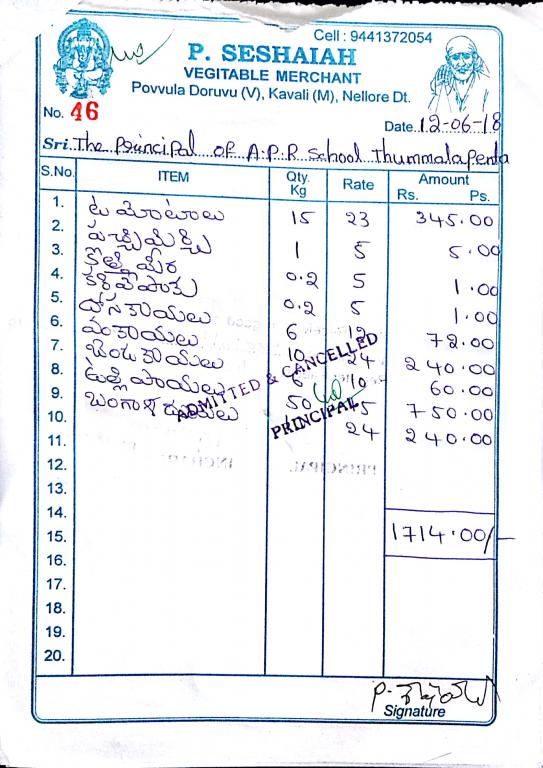 Cell : 9441372054
P. SESHAIAH
VEGITABLE MERCHANT
Povvula Doruvu (V), Kavali (M), Nellore Dt.
No. 46
Date. 12-06-18
Sri. The Principal of A.P.R School Thummalapenta
S.No. ITEM Qty. Kg Rate Amount Rs. Ps.
1. టమోటాలు 15 23 345.00
2. పచ్చిమిర్చి 1 5 5.00
3. కొత్తిమీర 0.2 5 1.00
4. కరివేపాకు 0.2 5 1.00
5. దోసకాయలు 6 12 72.00
6. వంకాయలు 10 24 240.00
7. బెండకాయలు 6 10 60.00
8. ఉల్లిపాయలు 50 15 750.00
9. బంగాళదుంపలు 24 240.00
10.
11.
12.
13.
14.
15. 1714.00/-
16.
17.
18.
19.
20.
ADMITTED & CANCELLED
PRINCIPAL
Signature